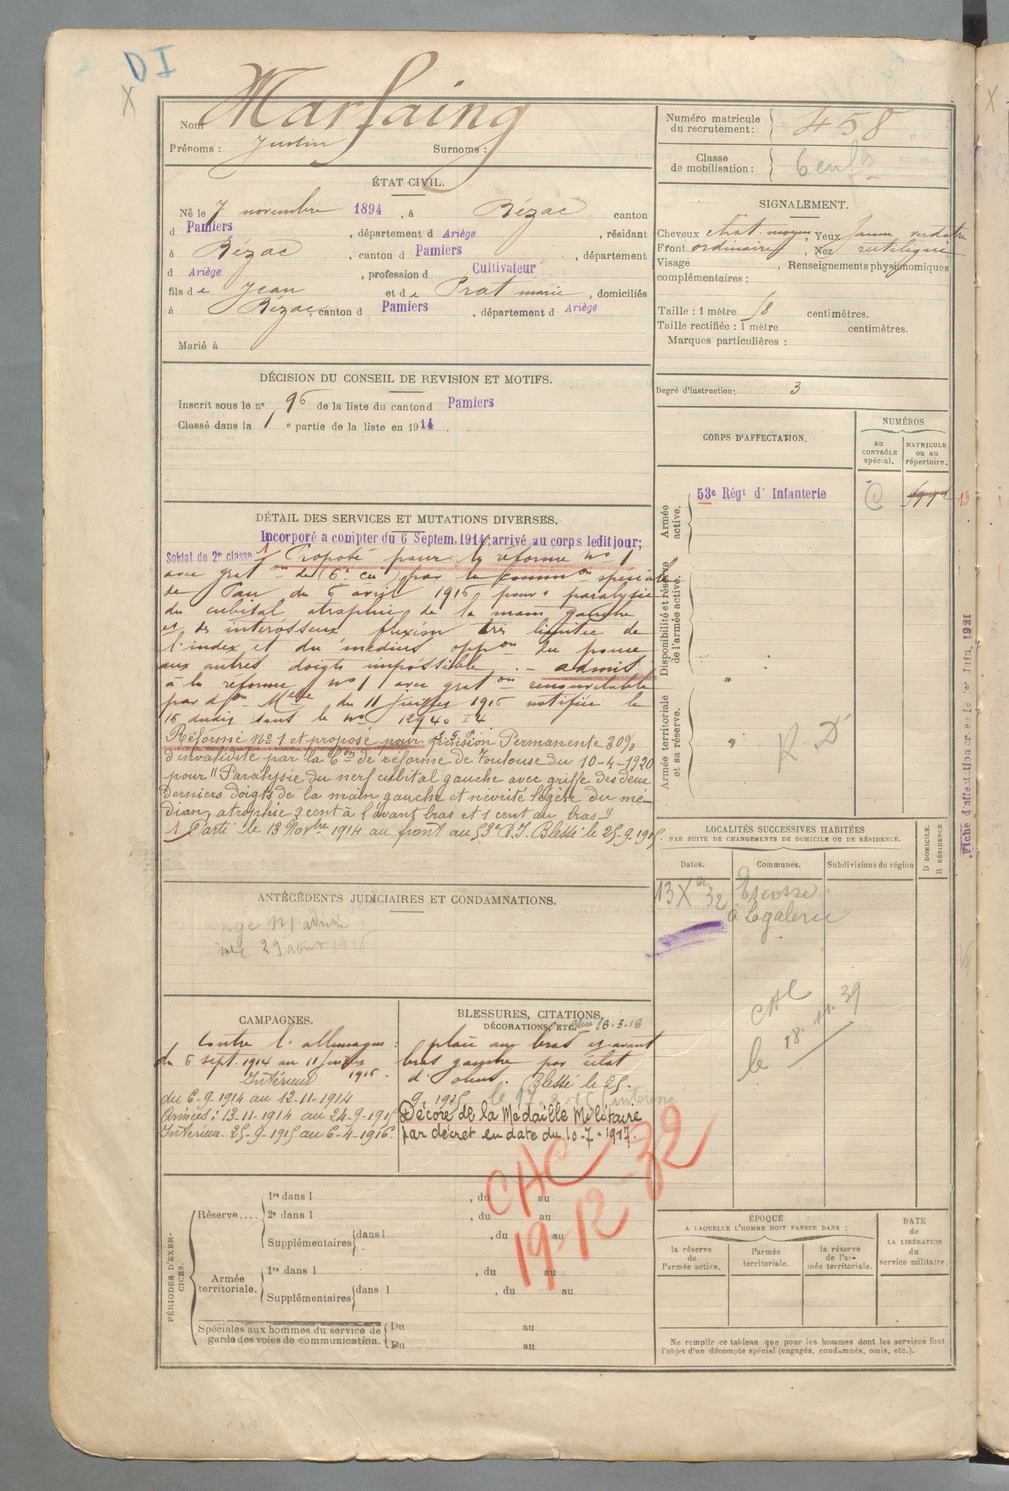 DI
X
Nom Marfaing
Prénoms : Justin Surnoms :
Numéro matricule du recrutement : 458
Classe de mobilisation : 6 enfts
ÉTAT CIVIL.
Né le 7 novembre 1894, à Bézac canton
d Pamiers, département d Ariège, résidant
à Bézac, canton d Pamiers, département
d Ariège, profession d Cultivateur
fils de Jean et de Prat marie, domiciliés
à Bézac canton d Pamiers, département d Ariège
Marié à
SIGNALEMENT.
Cheveux chat. moyen, Yeux jaune verdatre
Front ordinaire, Nez rectiligne
Visage , Renseignements physionomiques
complémentaires :
Taille : 1 mètre 58 centimètres.
Taille rectifiée : 1 mètre centimètres.
Marques particulières :
Degré d'instruction : 3
DÉCISION DU CONSEIL DE REVISION ET MOTIFS.
Inscrit sous le n° 96 de la liste du canton d Pamiers
Classé dans la 1e partie de la liste en 1914.
CORPS D'AFFECTATION.
NUMÉROS
AU CONTRÔLE spécial.
MATRICULE OU AU répertoire.
Armée active.
53e Régt d' Infanterie
C
13
Disponibilité et réserve de l'armée active.
Armée territoriale et sa réserve.
R. D
DÉTAIL DES SERVICES ET MUTATIONS DIVERSES.
Incorporé a compter du 6 Septem. 1914, arrivé au corps ledit jour;
Soldat de 2e classe 1/ Proposé pour la réforme n° 1
avec grat on de (6e cie) par la comm on spéciale
de Pau du 6 avril 1916, pour " paralysie
du cubital atrophie de la main gauche
et des interosseux flexion très limitée de
l'index et du médius opp on du pouce
aux autres doigts impossible. - admis
à la réforme n° 1 avec grat on renouvelable
par d on Melle du 11 juillet 1916 notifiée le
16 dudit sous le n° 12940 I 4.
Réformé N° 1 et proposé pour pension Permanente 30%
d'invalidité par la Con de réforme de Toulouse du 10-4-1920
pour " Paralysie du nerf cubital gauche avec griffe des deux
derniers doigts de la main gauche et névrite légère du mé-
dian, atrophie 3 cent à l'avant bras et 1 cent au bras "
1/ Parti le 13 Novbre 1914 au front au 53e R.I. Blessé le 25-9-1915.
LOCALITÉS SUCCESSIVES HABITÉES
PAR SUITE DE CHANGEMENTS DE DOMICILE OU DE RÉSIDENCE.
Dates.
Communes.
Subdivisions de région
D DOMICILE.
R RÉSIDENCE
13 Xbre 32 Escosse
à Legalerie
CAC
le 18.11.39
Fiche d'affectation créée le 1er Juin 1921
ANTÉCÉDENTS JUDICIAIRES ET CONDAMNATIONS.
29 août 1916
CAMPAGNES.
Contre l'allemagne :
du 6 sept. 1914 au 11 juillet
1916.
Intérieur
du 6-9-1914 au 12-11-1914
Armées : 13-11-1914 au 24-9-1915
Intérieur. 25-9-1915 au 6-4-1916.
BLESSURES, CITATIONS,
DÉCORATIONS, ETC.
plaie au bras et avant
bras gauche par éclat
d'obus. Blessé le 25-
9-1915
Décoré de la Médaille Militaire
par décret en date du 10-7-1917.
CAC
19-12-32
PÉRIODES D'EXERCICES.
Réserve.... 1re dans l , du au
2e dans l , du au
Supplémentaires dans l , du au
Armée territoriale. 1re dans l , du au
Supplémentaires dans l , du au
Spéciales aux hommes du service de garde des voies de communication. Du au
Du au
ÉPOQUE
A LAQUELLE L'HOMME DOIT PASSER DANS :
la réserve de l'armée active.
l'armée territoriale.
la réserve de l'armée territoriale.
DATE de LA LIBÉRATION du service militaire.
Ne remplir ce tableau que pour les hommes dont les services font
l'objet d'un décompte spécial (engagés, condamnés, omis, etc.).